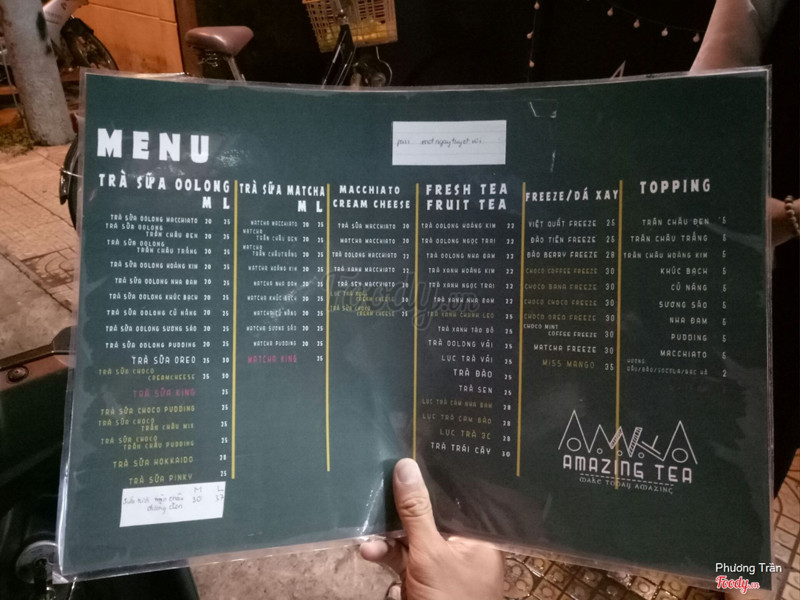 MENU
một ngày tuyệt vời
TRÀ SỮA OOLONG
M L
TRÀ SỮA OOLONG MACCHIATO 20 25
TRÀ SỮA OOLONG
TRÂN CHÂU ĐEN 20 25
TRÀ SỮA OOLONG
TRÂN CHÂU TRẮNG 20 25
TRÀ SỮA OOLONG HOÀNG KIM 20 25
TRÀ SỮA OOLONG NHA ĐAM 20 25
TRÀ SỮA OOLONG KHÚC BẠCH 20 25
TRÀ SỮA OOLONG CỦ NĂNG 20 25
TRÀ SỮA OOLONG SƯƠNG SÁO 20 25
TRÀ SỮA OOLONG PUDDING 20 25
TRÀ SỮA OREO 25 30
TRÀ SỮA CHOCO
CREAMCHEESE 25 30
TRÀ SỮA KING 25
TRÀ SỮA CHOCO PUDDING 25
TRÀ SỮA CHOCO
TRÂN CHÂU MIX 25
TRÀ SỮA CHOCO
TRÂN CHÂU PUDDING 25
TRÀ SỮA HOKKAIDO 28
TRÀ SỮA PINKY 25
M L
Sữa tươi trân châu
đường đen
TRÀ SỮA MATCHA
M L
MATCHA MACCHIATO 20 25
MATCHA
TRÂN CHÂU ĐEN 20 25
MATCHA
TRÂN CHÂU TRẮNG 20 25
MATCHA HOÀNG KIM 20 25
MATCHA NHA ĐAM 20 25
MATCHA KHÚC BẠCH 20 25
MATCHA CỦ NĂNG 20 25
MATCHA SƯƠNG SÁO 20 25
MATCHA PUDDING 20 25
MATCHA KING 25
MACCHIATO
CREAM CHEESE
TRÀ SỮA MACCHIATO 20
MATCHA MACCHIATO 20
TRÀ OOLONG MACCHIATO 22
TRÀ XANH MACCHIATO 22
TRÀ SEN MACCHIATO
CREAM CHEESE
CREAM CHEESE 25
FRESH TEA
FRUIT TEA
TRÀ OOLONG HOÀNG KIM 22
TRÀ OOLONG NGỌC TRAI 22
TRÀ OOLONG NHA ĐAM 22
TRÀ XANH HOÀNG KIM 22
TRÀ XANH NGỌC TRAI 22
TRÀ XANH NHA ĐAM 22
TRÀ XANH CHANH LEO
TRÀ XANH TÁO ĐỎ 25
TRÀ OOLONG VẢI 25
LỤC TRÀ VẢI 25
TRÀ ĐÀO 25
TRÀ SEN 25
LỤC TRÀ CAM NHA ĐAM 28
LỤC TRÀ CAM ĐÀO 28
LỤC TRÀ 3C 28
TRÀ TRÁI CÂY 30
FREEZE/ĐÁ XAY
VIỆT QUẤT FREEZE 25
ĐÀO TIÊN FREEZE 25
ĐÀO BERRY FREEZE 28
CHOCO COFFEE FREEZE 30
CHOCO BANA FREEZE 30
CHOCO CHOCO FREEZE 30
CHOCO OREO FREEZE 30
CHOCO MINT
COFFEE FREEZE 30
MATCHA FREEZE 30
MISS MANGO 35
TOPPING
TRÂN CHÂU ĐEN 5
TRÂN CHÂU TRẮNG 5
TRÂN CHÂU HOÀNG KIM 5
KHÚC BẠCH 5
CỦ NĂNG 5
SƯƠNG SÁO 5
NHA ĐAM 5
PUDDING 5
MACCHIATO 5
HƯƠNG:
2
AMAZING TEA
MAKE TODAY AMAZING
Foody.vn
Phương Trần
Foody.vn